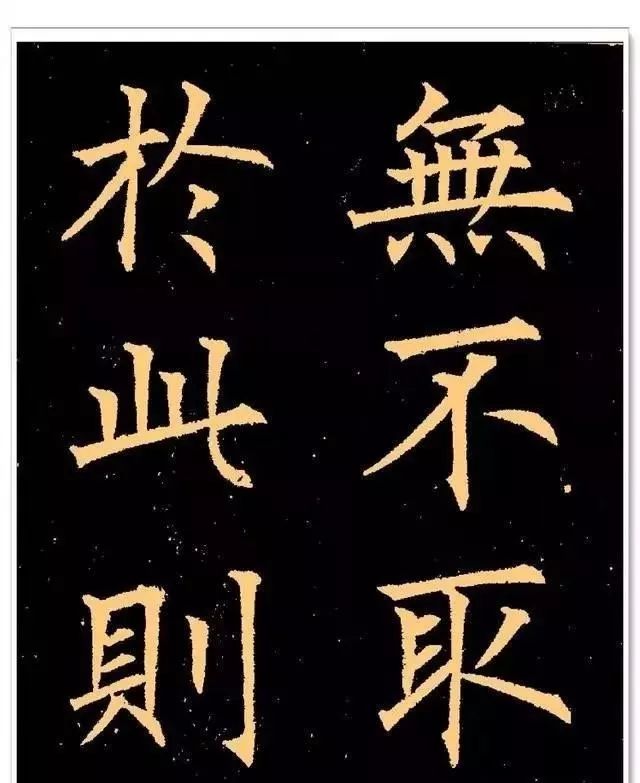 無不取
於此則